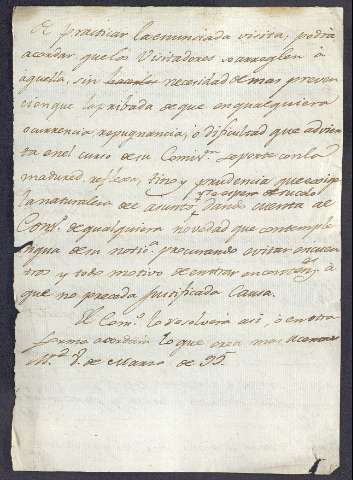 de practicar la enunciada visita; podrá
acordar que los Visitadores se arreglen á
aquella, sin necesidad de mas preven
cion que la pribada de que en qualquiera
ocurrencia, repugnancia, ó dificultad que advier
ta en el curso de su Comis.ⁿ se porte con la
madurez, reflexn, tino y prudencia que exige
la naturaleza del asunto, dando cuenta al
Cons.º de qualquiera novedad que contemple
digna de su notic.ª procurando evitar encuen
tros, y todo motivo de entrar en contestⁿˢ á
que no preceda justificada Causa.
El Cons.º lo resolverá asi, ó en otra
forma acordará lo que crea mas acertado
M.ᵈ 8. de Marzo de 95.